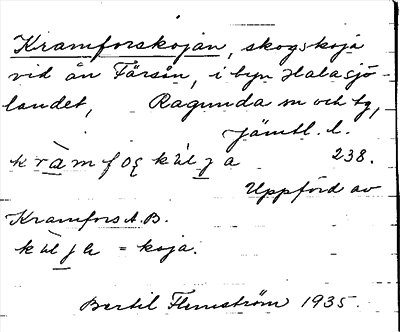 Kramforskojan, skogskoja
vid ån Färsån, i byn Halasjö-
landet, Ragunda sn och tg,
Jämtl. l.
238.
Uppförd av
Kramfors A.B.
= koja.
Bertil Flemström 1935.